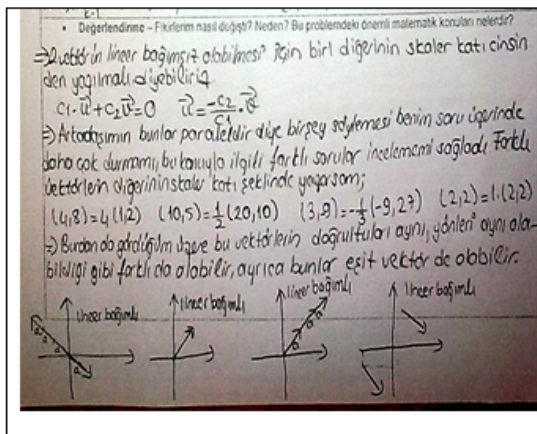 • Değerlendirme – Fikirlerim nasıl değişti? Neden? Bu problemdeki önemli matematik konuları nelerdir?
⇒ 2 vektörün lineer bağımsız olabilmesi için biri diğerinin skaler katı cinsin
den yazılmalı diyebiliriz.
C1·u⃗+C2v⃗=0 u⃗=-C2/C1·v⃗
⇒) Arkadaşımın bunlar paraleldir diye birşey söylemesi benim soru üzerinde
daha çok durmamı, bu konuyla ilgili farklı sorular incelememi sağladı. Farklı
vektörlerin diğerinin skaler katı şeklinde yazarsam;
(4,8)=4(1,2) (10,5)=1/2(20,10) (3,9)=-1/3(-9,27) (2,2)=1.(2,2)
⇒) Burdan da gördüğüm üzere bu vektörlerin doğrultuları aynı, yönleri aynı ola-
bildiği gibi farklı da olabilir, ayrıca bunlar eşit vektör de olabilir.
lineer bağımlı lineer bağımlı lineer bağımlı lineer bağımlı